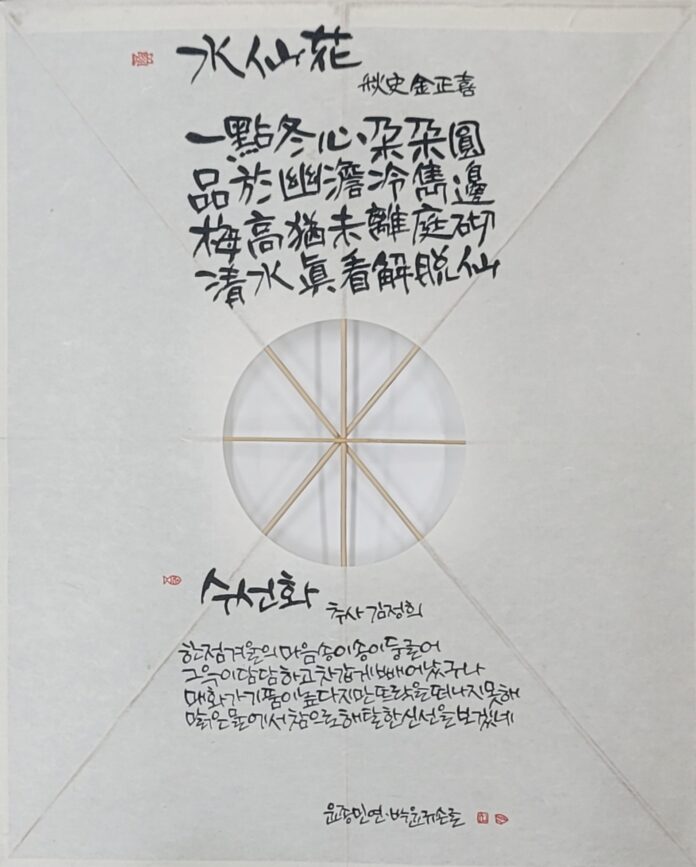 水仙花
秋史金正喜
一點冬心朶朶圓
品於幽澹冷雋邊
梅高猶未離庭砌
淸水眞看解脫仙
수선화
추사 김정희
한점겨울의마음송이송이둥글어
그윽이담담하고찬갑게빼어났구나
매화가기품이높다지만뜨락을떠나지못해
맑은물에서참으로해탈한신선을보겠네
윤종민연·박윤규손글